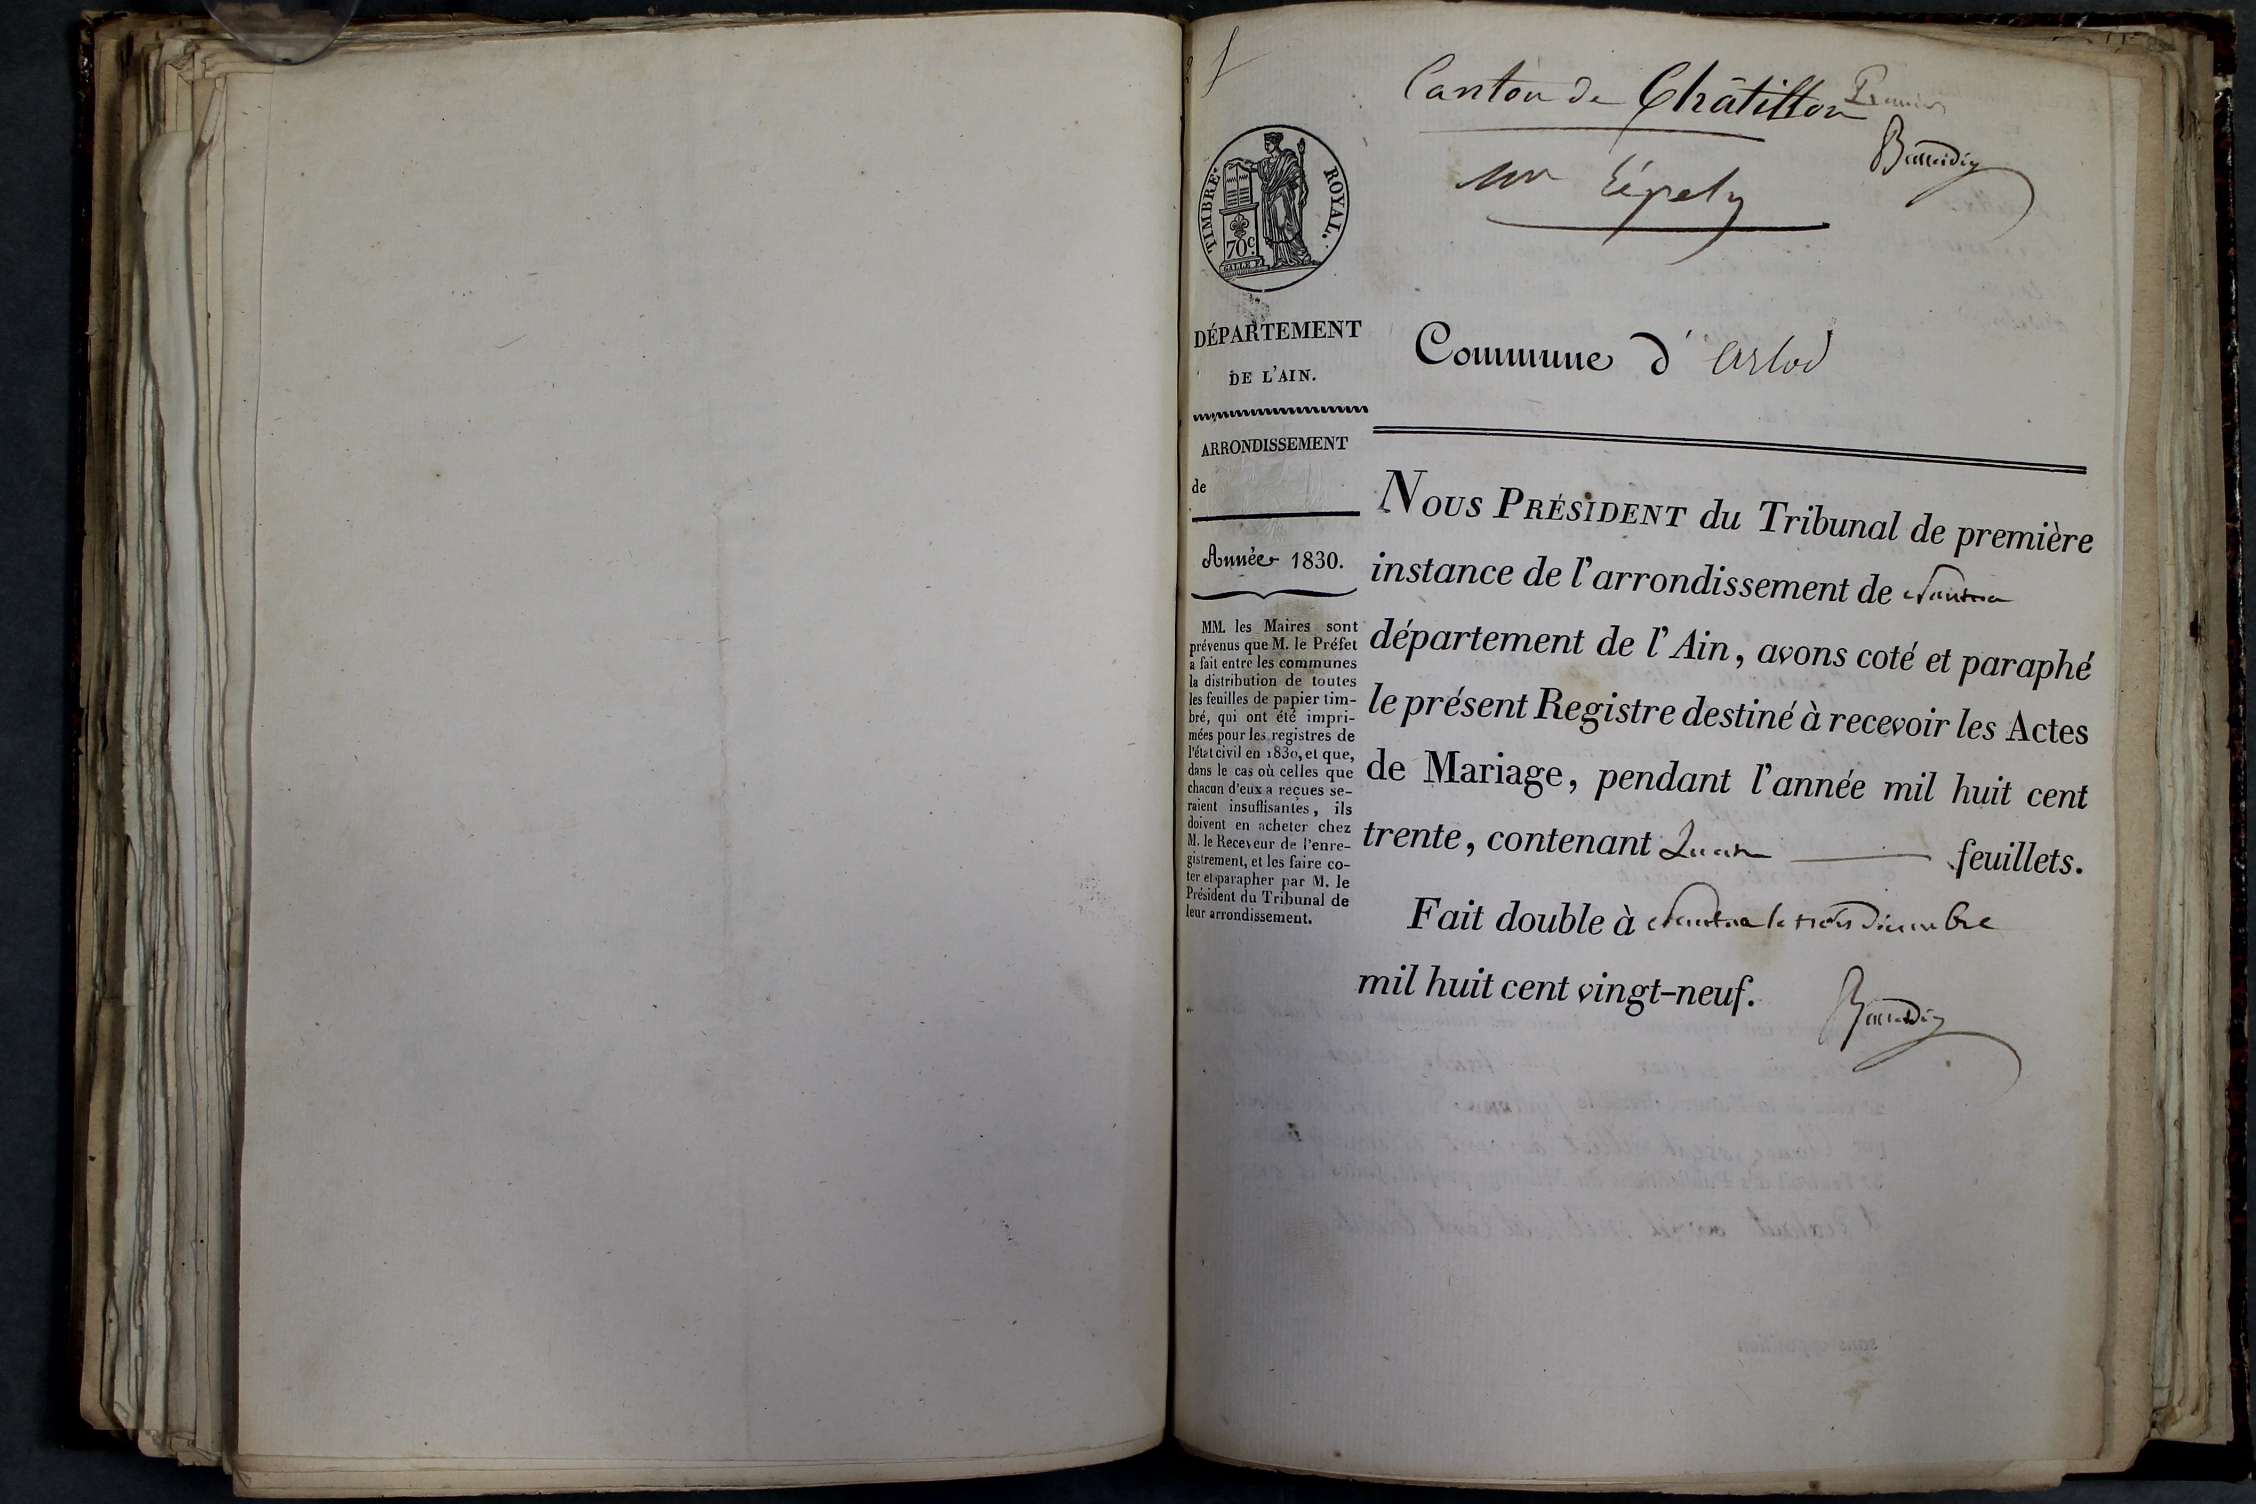 Canton de Châtillon Premier
TIMBRE ROYAL.
70c
DÉPARTEMENT
DE L'AIN.
Commune d' Arlod
ARRONDISSEMENT
de
Année 1830.
MM. les Maires sont
prévenus que M. le Préfet
a fait entre les communes
la distribution de toutes
les feuilles de papier tim-
bré, qui ont été impri-
mées pour les registres de
l'état civil en 1830, et que,
dans le cas où celles que
chacun d'eux a reçues se-
raient insuffisantes, ils
doivent en acheter chez
M. le Receveur de l'enre-
gistrement, et les faire co-
ter et parapher par M. le
Président du Tribunal de
leur arrondissement.
NOUS PRÉSIDENT du Tribunal de première
instance de l'arrondissement de Nantua
département de l'Ain, avons coté et paraphé
le présent Registre destiné à recevoir les Actes
de Mariage, pendant l'année mil huit cent
trente, contenant quatre feuillets.
Fait double à Nantua le trois Décembre
mil huit cent vingt-neuf.